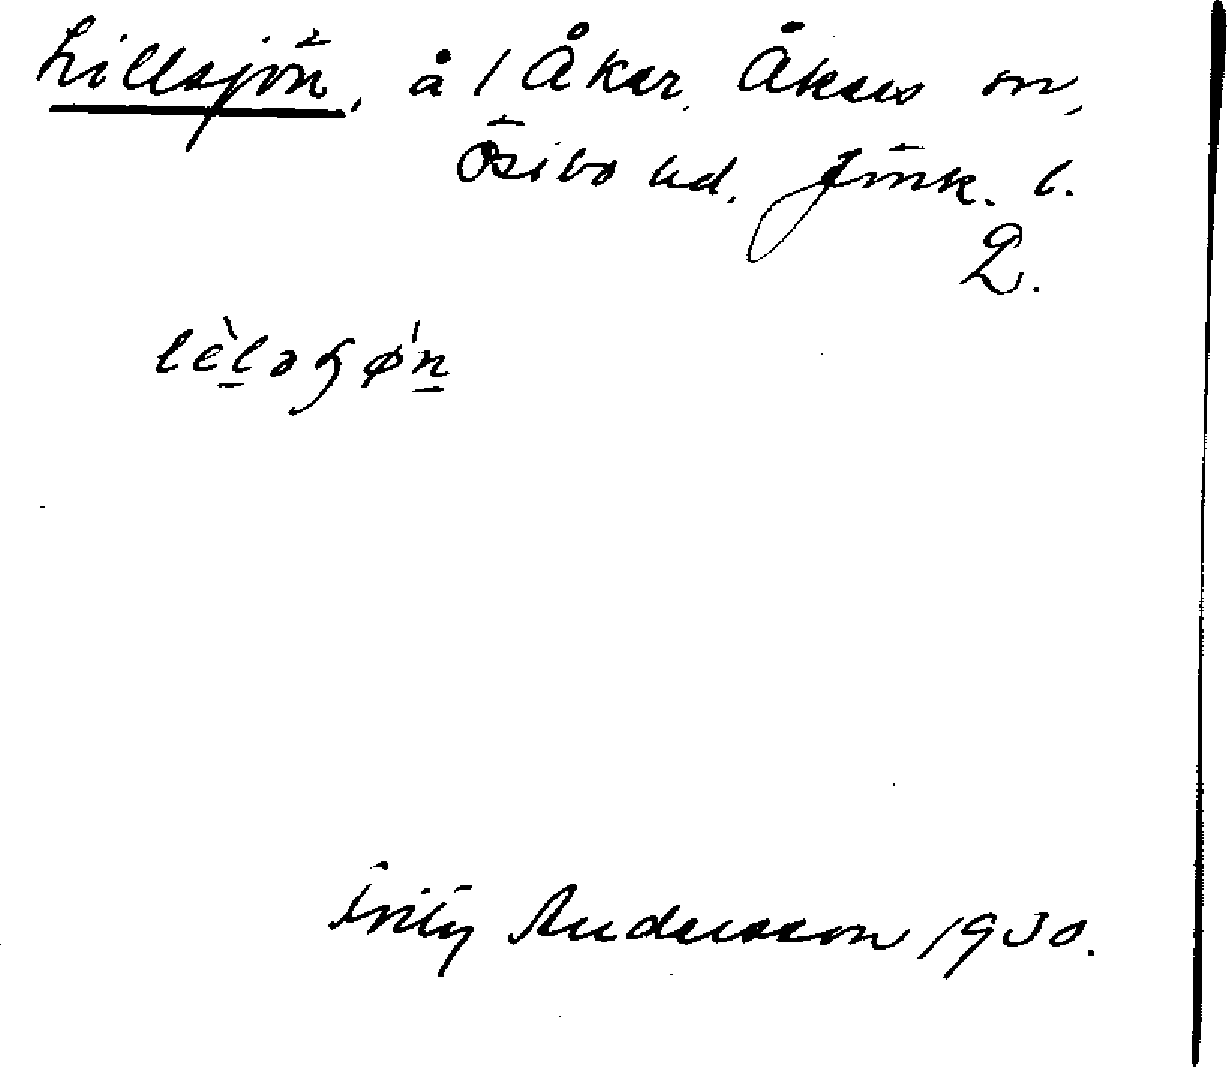 Lillsjön, å 1 Åker, Åkers sn,
Östbo hd. Jönk. l.
2.
lèləɧøn
Fritz Andersson 1930.